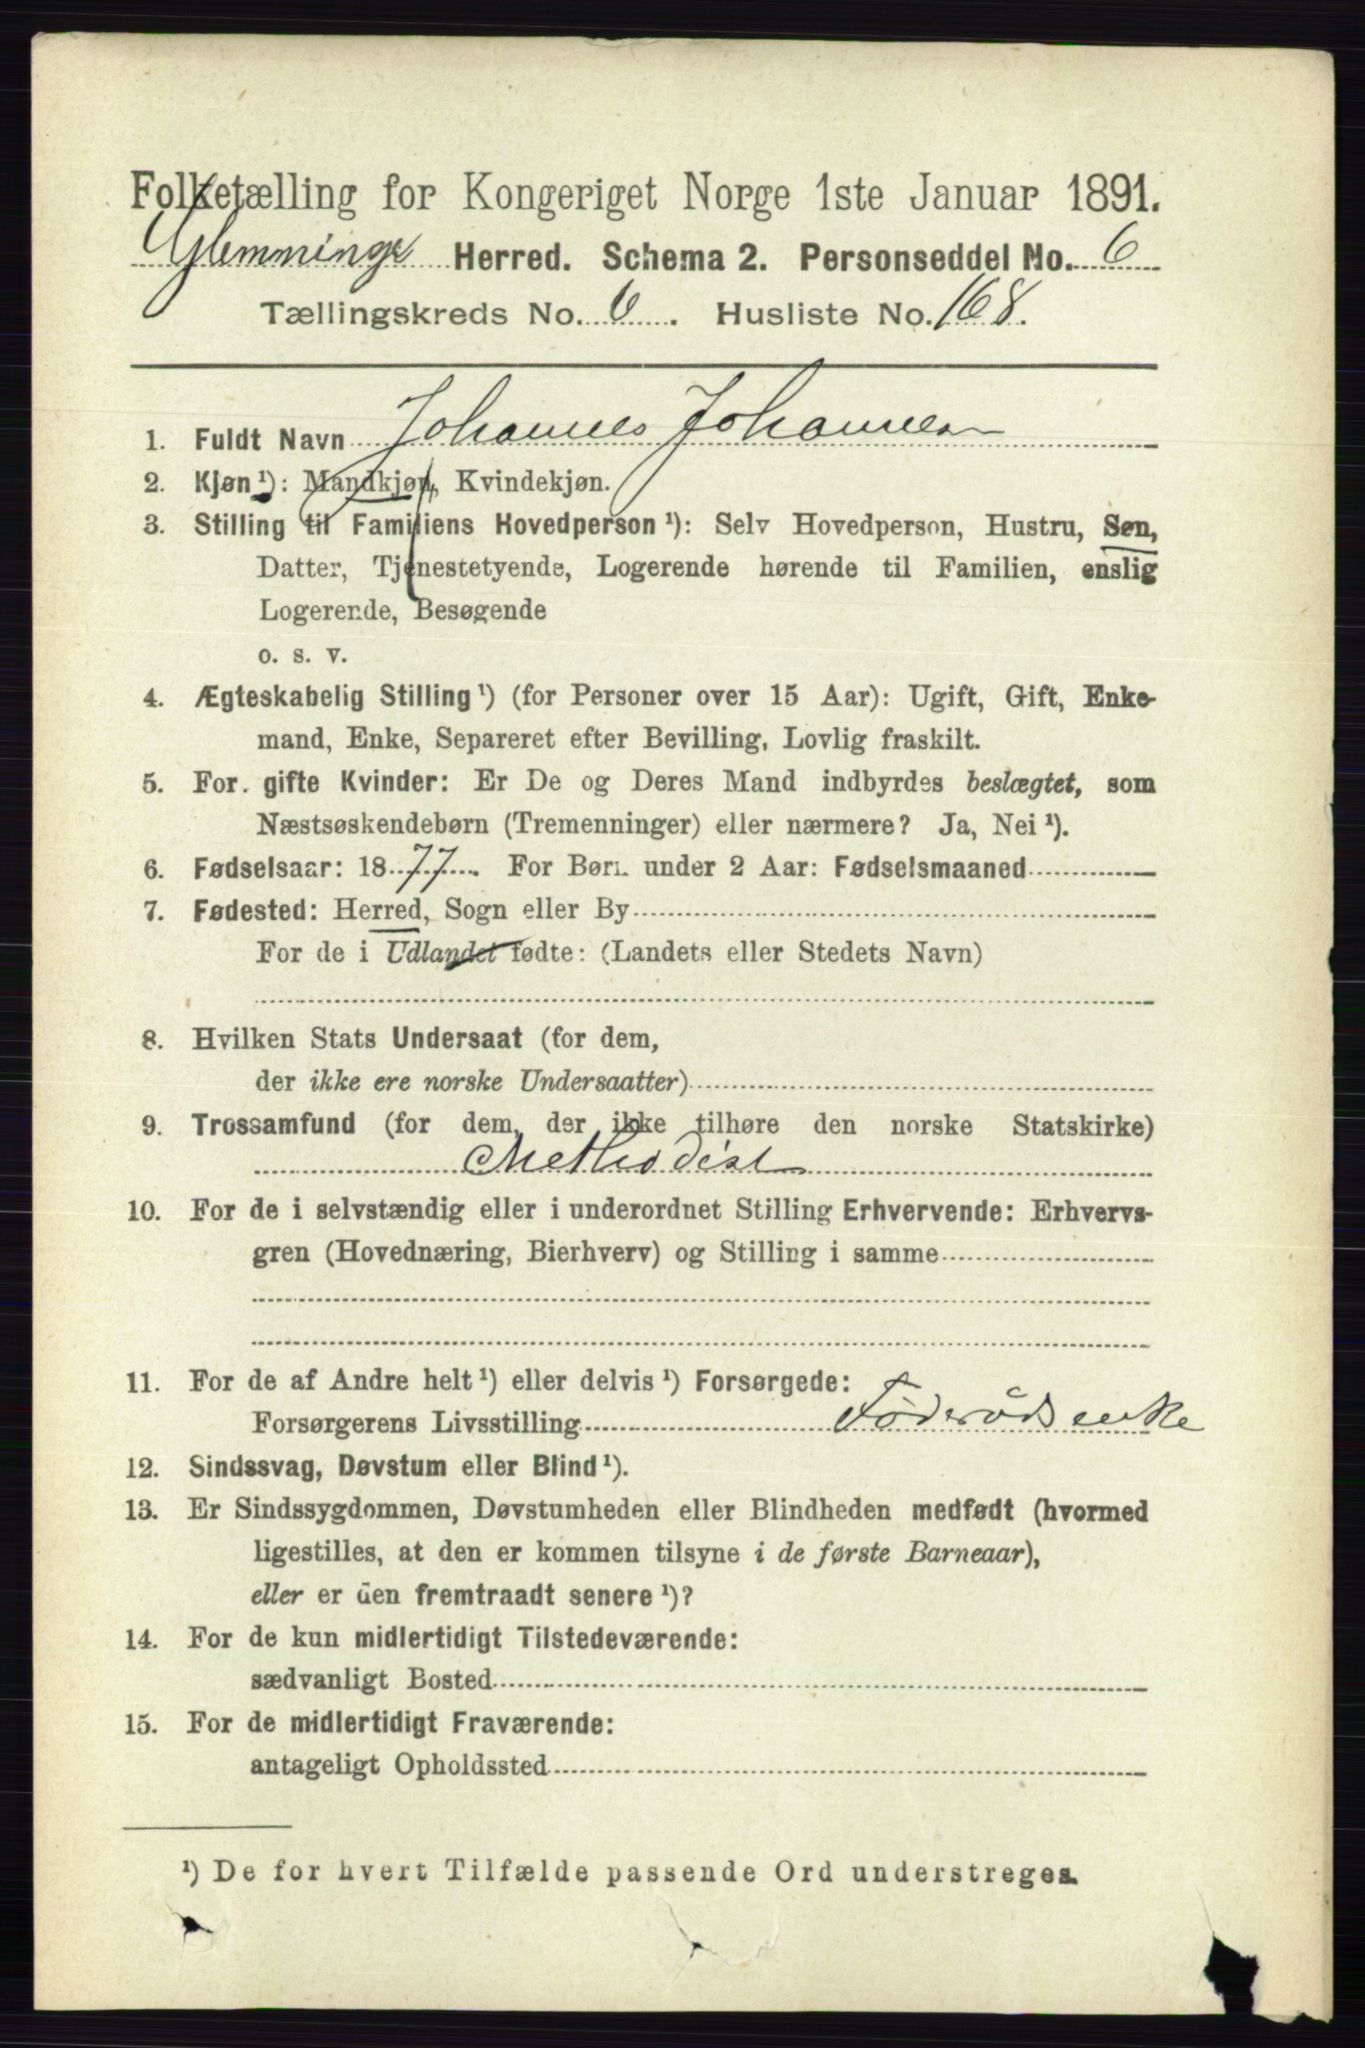 Folketælling for Kongeriget Norge 1ste Januar 1891.
Glemminge Herred. Schema 2. Personseddel No. 6
Tællingskreds No. 6. Husliste No. 168.
1. Fuldt Navn Johannes Johannesen
2. Kjøn ¹): Mandkjøn, Kvindekjøn.
3. Stilling til Familiens Hovedperson ¹): Selv Hovedperson, Hustru, Søn,
Datter, Tjenestetyende, Logerende hørende til Familien, enslig
Logerende, Besøgende
o. s. v.
4. Ægteskabelig Stilling ¹) (for Personer over 15 Aar): Ugift, Gift, Enke-
mand, Enke, Separeret efter Bevilling, Lovlig fraskilt.
5. For gifte Kvinder: Er De og Deres Mand indbyrdes beslægtet, som
Næstsøskendebørn (Tremenninger) eller nærmere? Ja, Nei ¹).
6. Fødselsaar: 1877. For Børn under 2 Aar: Fødselsmaaned
7. Fødested: Herred, Sogn eller By
For de i Udlandet fødte: (Landets eller Stedets Navn)
8. Hvilken Stats Undersaat (for dem,
der ikke ere norske Undersaatter)
9. Trossamfund (for dem, der ikke tilhøre den norske Statskirke)
Methodist
10. For de i selvstændig eller i underordnet Stilling Erhvervende: Erhvervs-
gren (Hovednæring, Bierhverv) og Stilling i samme
11. For de af Andre helt ¹) eller delvis ¹) Forsørgede:
Forsørgerens Livsstilling Föderådsenke
12. Sindssvag, Døvstum eller Blind ¹).
13. Er Sindssygdommen, Døvstumheden eller Blindheden medfødt (hvormed
ligestilles, at den er kommen tilsyne i de første Barneaar),
eller er den fremtraadt senere ¹)?
14. For de kun midlertidigt Tilstedeværende:
sædvanligt Bosted
15. For de midlertidigt Fraværende:
antageligt Opholdssted
¹) De for hvert Tilfælde passende Ord understreges.